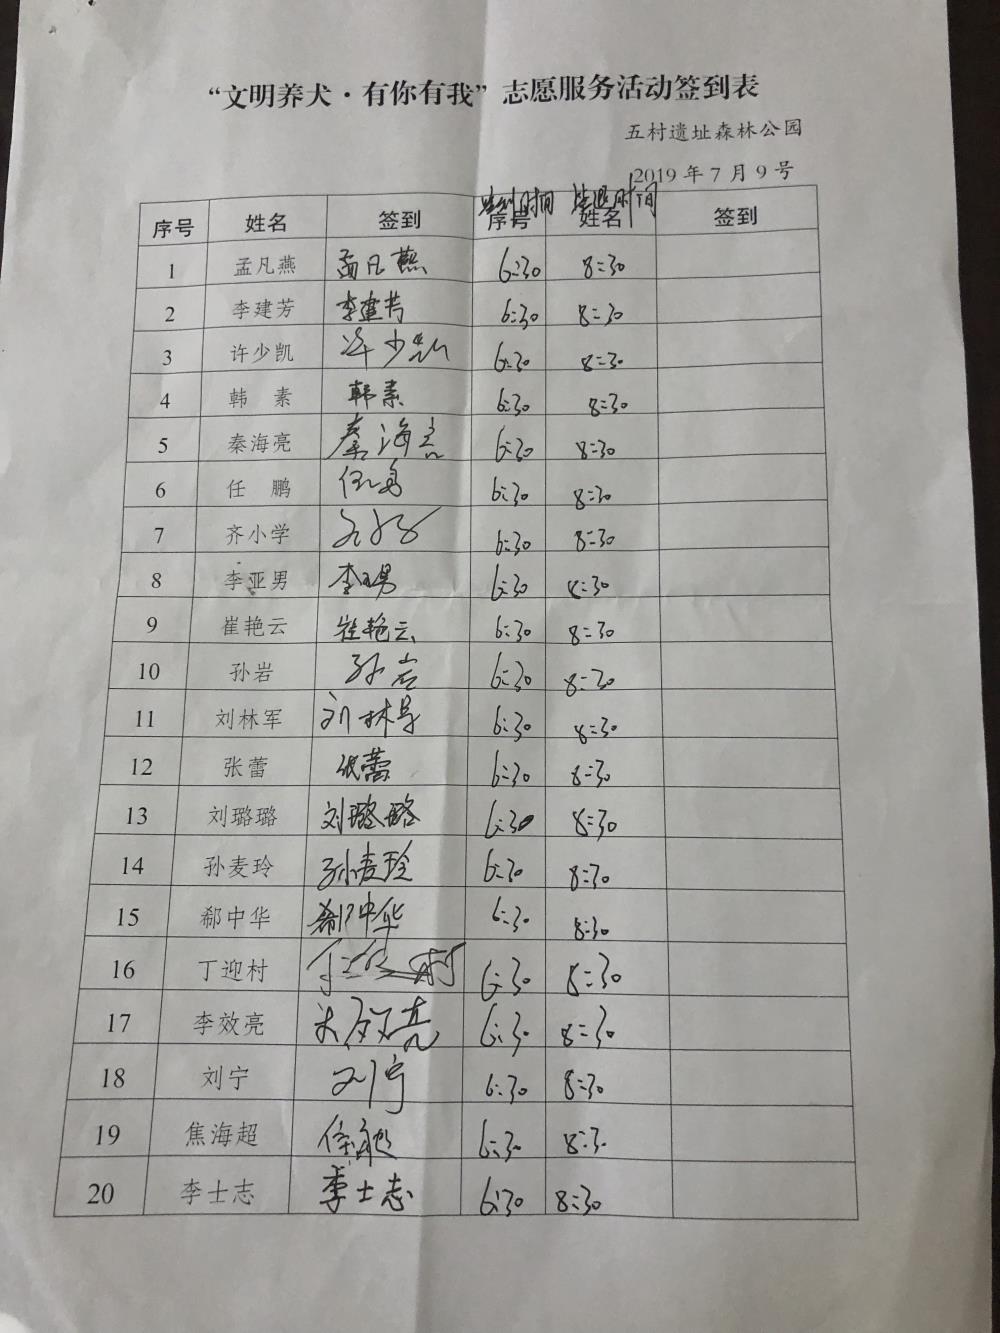 “文明养犬·有你有我”志愿服务活动签到表
五村遗址森林公园
2019年7月9号
签到时间 签退时间
序号 姓名 签到 序号 姓名 签到
1 孟凡燕 孟凡燕 6:30 8:30
2 李建芳 李建芳 6:30 8:30
3 许少凯 许少凯 6:30 8:30
4 韩 素 韩素 6:30 8:30
5 秦海亮 秦海亮 6:30 8:30
6 任 鹏 6:30 8:30
7 齐小学 6:30 8:30
8 李亚男 李亚男 6:30 8:30
9 崔艳云 崔艳云 6:30 8:30
10 孙岩 孙岩 6:30 8:30
11 刘林军 刘林军 6:30 8:30
12 张蕾 张蕾 6:30 8:30
13 刘璐璐 刘璐璐 6:30 8:30
14 孙麦玲 孙麦玲 6:30 8:30
15 郗中华 郗中华 6:30 8:30
16 丁迎村 丁迎村 6:30 8:30
17 李效亮 李效亮 6:30 8:30
18 刘宁 刘宁 6:30 8:30
19 焦海超 6:30 8:30
20 李士志 李士志 6:30 8:30